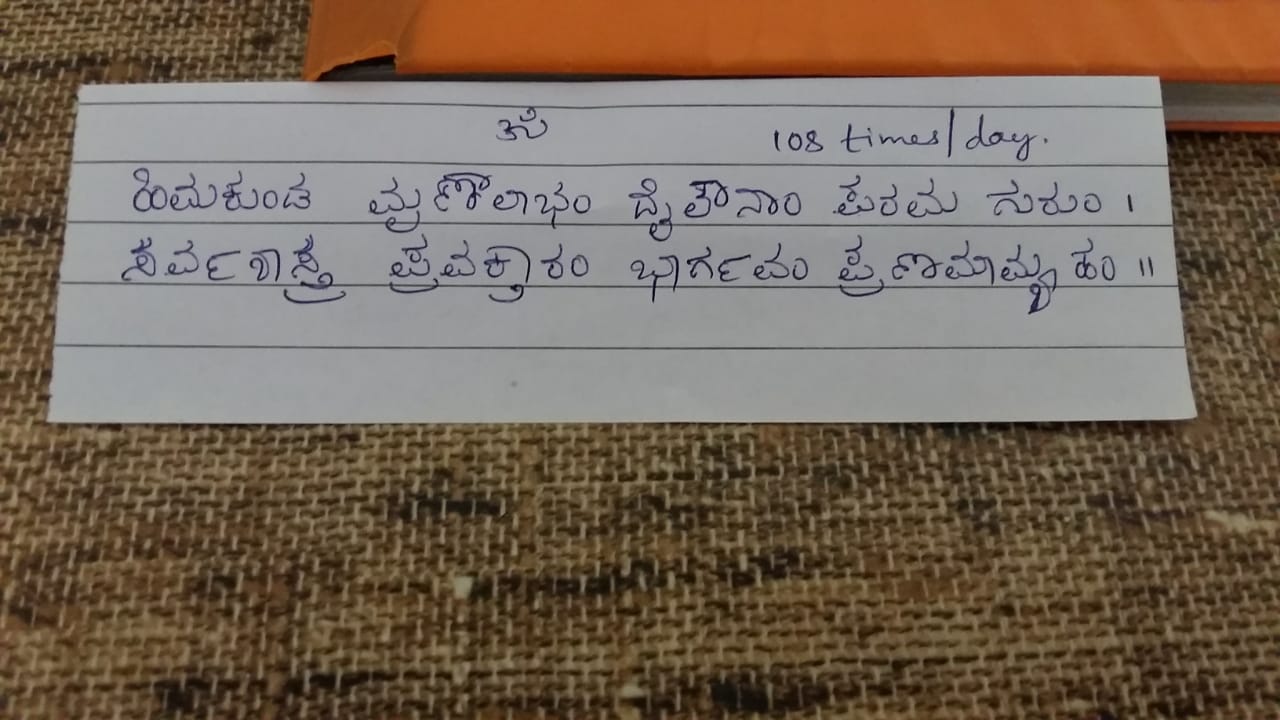 ಉಁ 108 times/day.
ಹಿಮಕುಂಡ ಮೃಣಾಲಾಭಂ ದೈತಾನಾಂ ಪರಮ ಗುರುಂ ।
ಸರ್ವಶಾಸ್ತ್ರ ಪ್ರವಕ್ತಾರಂ ಭಾರ್ಗವಂ ಪ್ರಣಮಾಮ್ಯಹಂ ॥